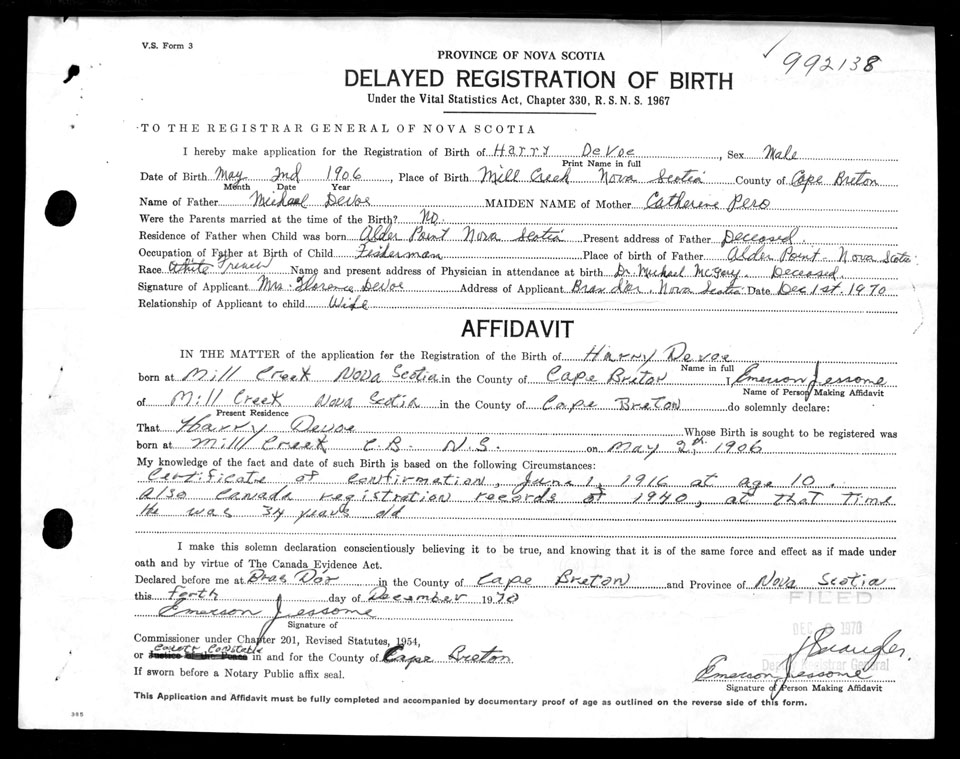 V.S. Form 3
992138
PROVINCE OF NOVA SCOTIA
DELAYED REGISTRATION OF BIRTH
Under the Vital Statistics Act, Chapter 330, R.S.N.S. 1967
TO THE REGISTRAR GENERAL OF NOVA SCOTIA
I hereby make application for the Registration of Birth of Harry DeVoe, Sex Male
Print Name in full
Date of Birth May 2nd 1906, Place of Birth Mill Creek Nova Scotia County of Cape Breton
Month Date Year
Name of Father Michael DeVoe MAIDEN NAME of Mother Catherene Pero
Were the Parents married at the time of the Birth? No.
Residence of Father when Child was born Alder Point Nova Scotia Present address of Father Deceased.
Occupation of Father at Birth of Child Fisherman Place of birth of Father Alder Point Nova Scotia
Race White French Name and present address of Physician in attendance at birth Dr. Michael McGary. Deceased.
Signature of Applicant Mrs. Florence DeVoe Address of Applicant Bras d'or. Nova Scotia Date Dec 1st. 1970
Relationship of Applicant to child Wife
AFFIDAVIT
IN THE MATTER of the application for the Registration of the Birth of Harry Devoe
Name in full
born at Mill Creek Nova Scotia in the County of Cape Breton I Emerson Jessome
Name of Person Making Affidavit
of Mill Creek Nova Scotia in the County of Cape Breton do solemnly declare:
Present Residence
That Harry Devoe Whose Birth is sought to be registered was
born at Mill Creek C.B. N.S. on May 2th 1906
My knowledge of the fact and date of such Birth is based on the following Circumstances:
Certificate of confirmation, June 1, 1916 at age 10.
also Canada registration records of 1940, at that time
He was 34 years old
I make this solemn declaration conscientiously believing it to be true, and knowing that it is of the same force and effect as if made under
oath and by virtue of The Canada Evidence Act.
Declared before me at Bras Dor in the County of Cape Breton and Province of Nova Scotia
this Forth day of December 1970
FILED
Emerson Jessome
Signature of
DEC 1970
Commissioner under Chapter 201, Revised Statutes, 1954,
County Constable
or Justice of the Peace in and for the County of Cape Breton
Registrar General
If sworn before a Notary Public affix seal.
Emerson Jessome
Signature of Person Making Affidavit
This Application and Affidavit must be fully completed and accompanied by documentary proof of age as outlined on the reverse side of this form.